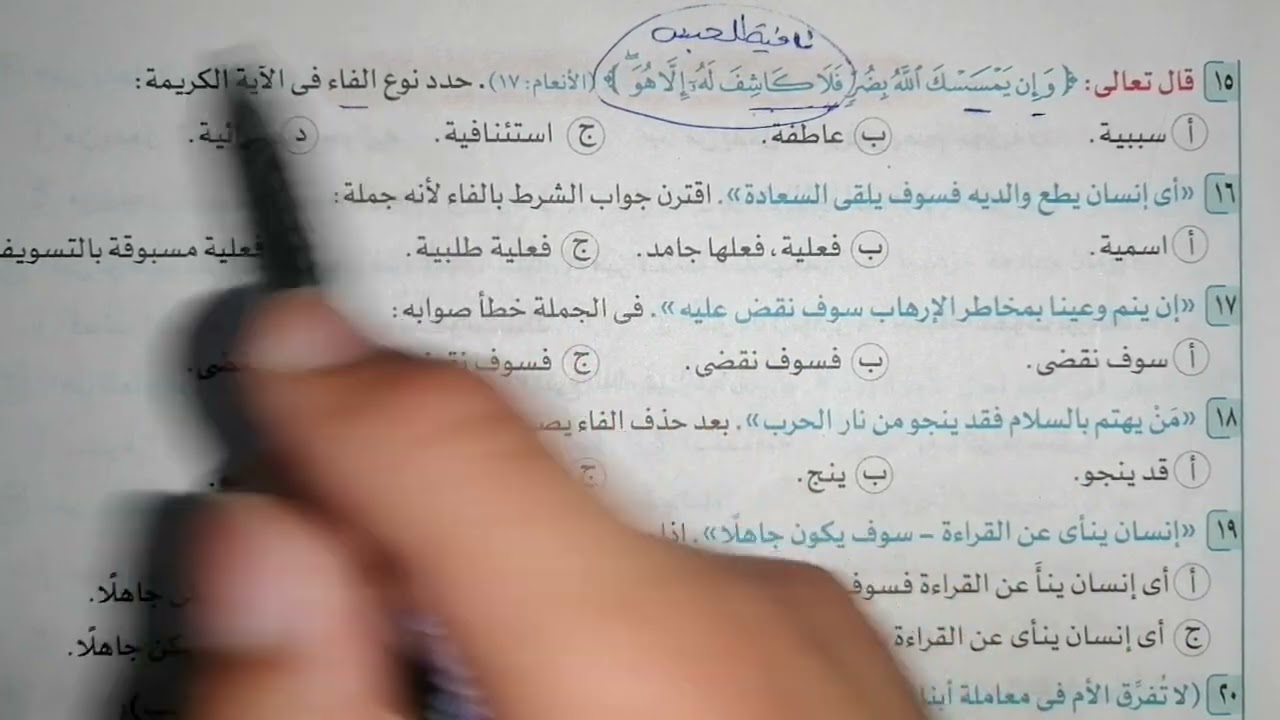 نافية للجنس
١٥ قال تعالى: ﴿ وَإِن يَمْسَسْكَ ٱللَّهُ بِضُرٍّ فَلَا كَاشِفَ لَهُۥٓ إِلَّا هُوَ ﴾ (الأنعام: ١٧). حدد نوع الفاء فى الآية الكريمة:
أ سببية. ب عاطفة. ج استئنافية. د
١٦ «أى إنسان يطع والديه فسوف يلقى السعادة». اقترن جواب الشرط بالفاء لأنه جملة:
أ اسمية. ب فعلية، فعلها جامد. ج فعلية طلبية. فعلية مسبوقة بالتسويف
١٧ «إن ينم وعينا بمخاطر الإرهاب سوف نقض عليه». فى الجملة خطأ صوابه:
أ سوف نقضى. ب فسوف نقضى. ج فسوف
١٨ «مَنْ يهتم بالسلام فقد ينجو من نار الحرب». بعد حذف الفاء
أ قد ينجو. ب ينج. ج
١٩ «إنسان ينأى عن القراءة – سوف يكون جاهلًا». إذا
أ أى إنسان ينأَ عن القراءة فسوف جاهلًا.
ج أى إنسان ينأى عن القراءة جاهلًا.
٢٠ (لا تُفرِّق الأم فى معاملة